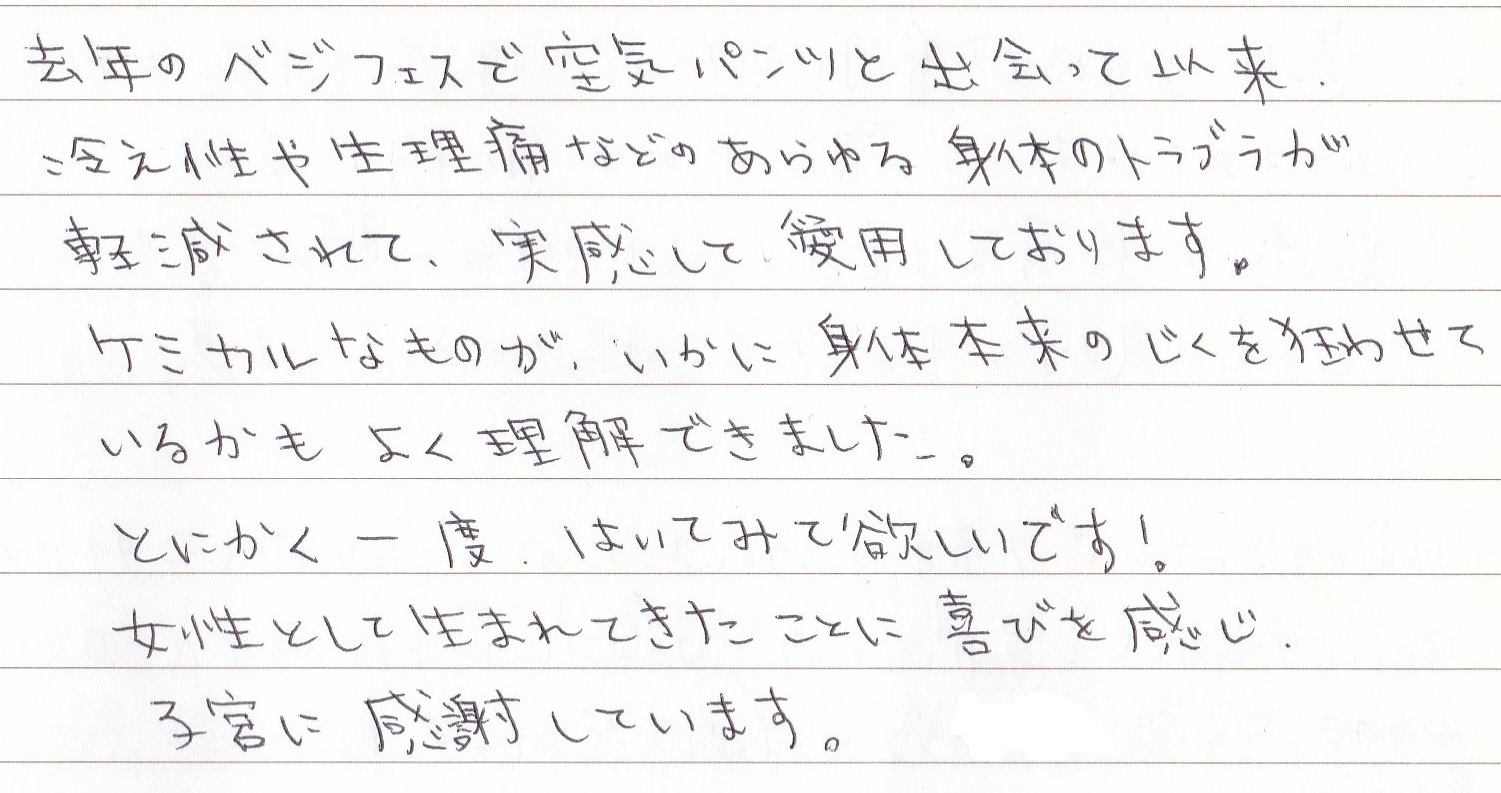 去年のベジフェスで空気パンツと出会って以来、
冷え性や生理痛などのあらゆる身体のトラブラが
軽減されて、実感して愛用しております。
ケミカルなものが、いかに身体本来のじくを狂わせて
いるかもよく理解できました。
とにかく一度、はいてみて欲しいです!
女性として生まれてきたことに喜びを感じ、
子宮に感謝しています。